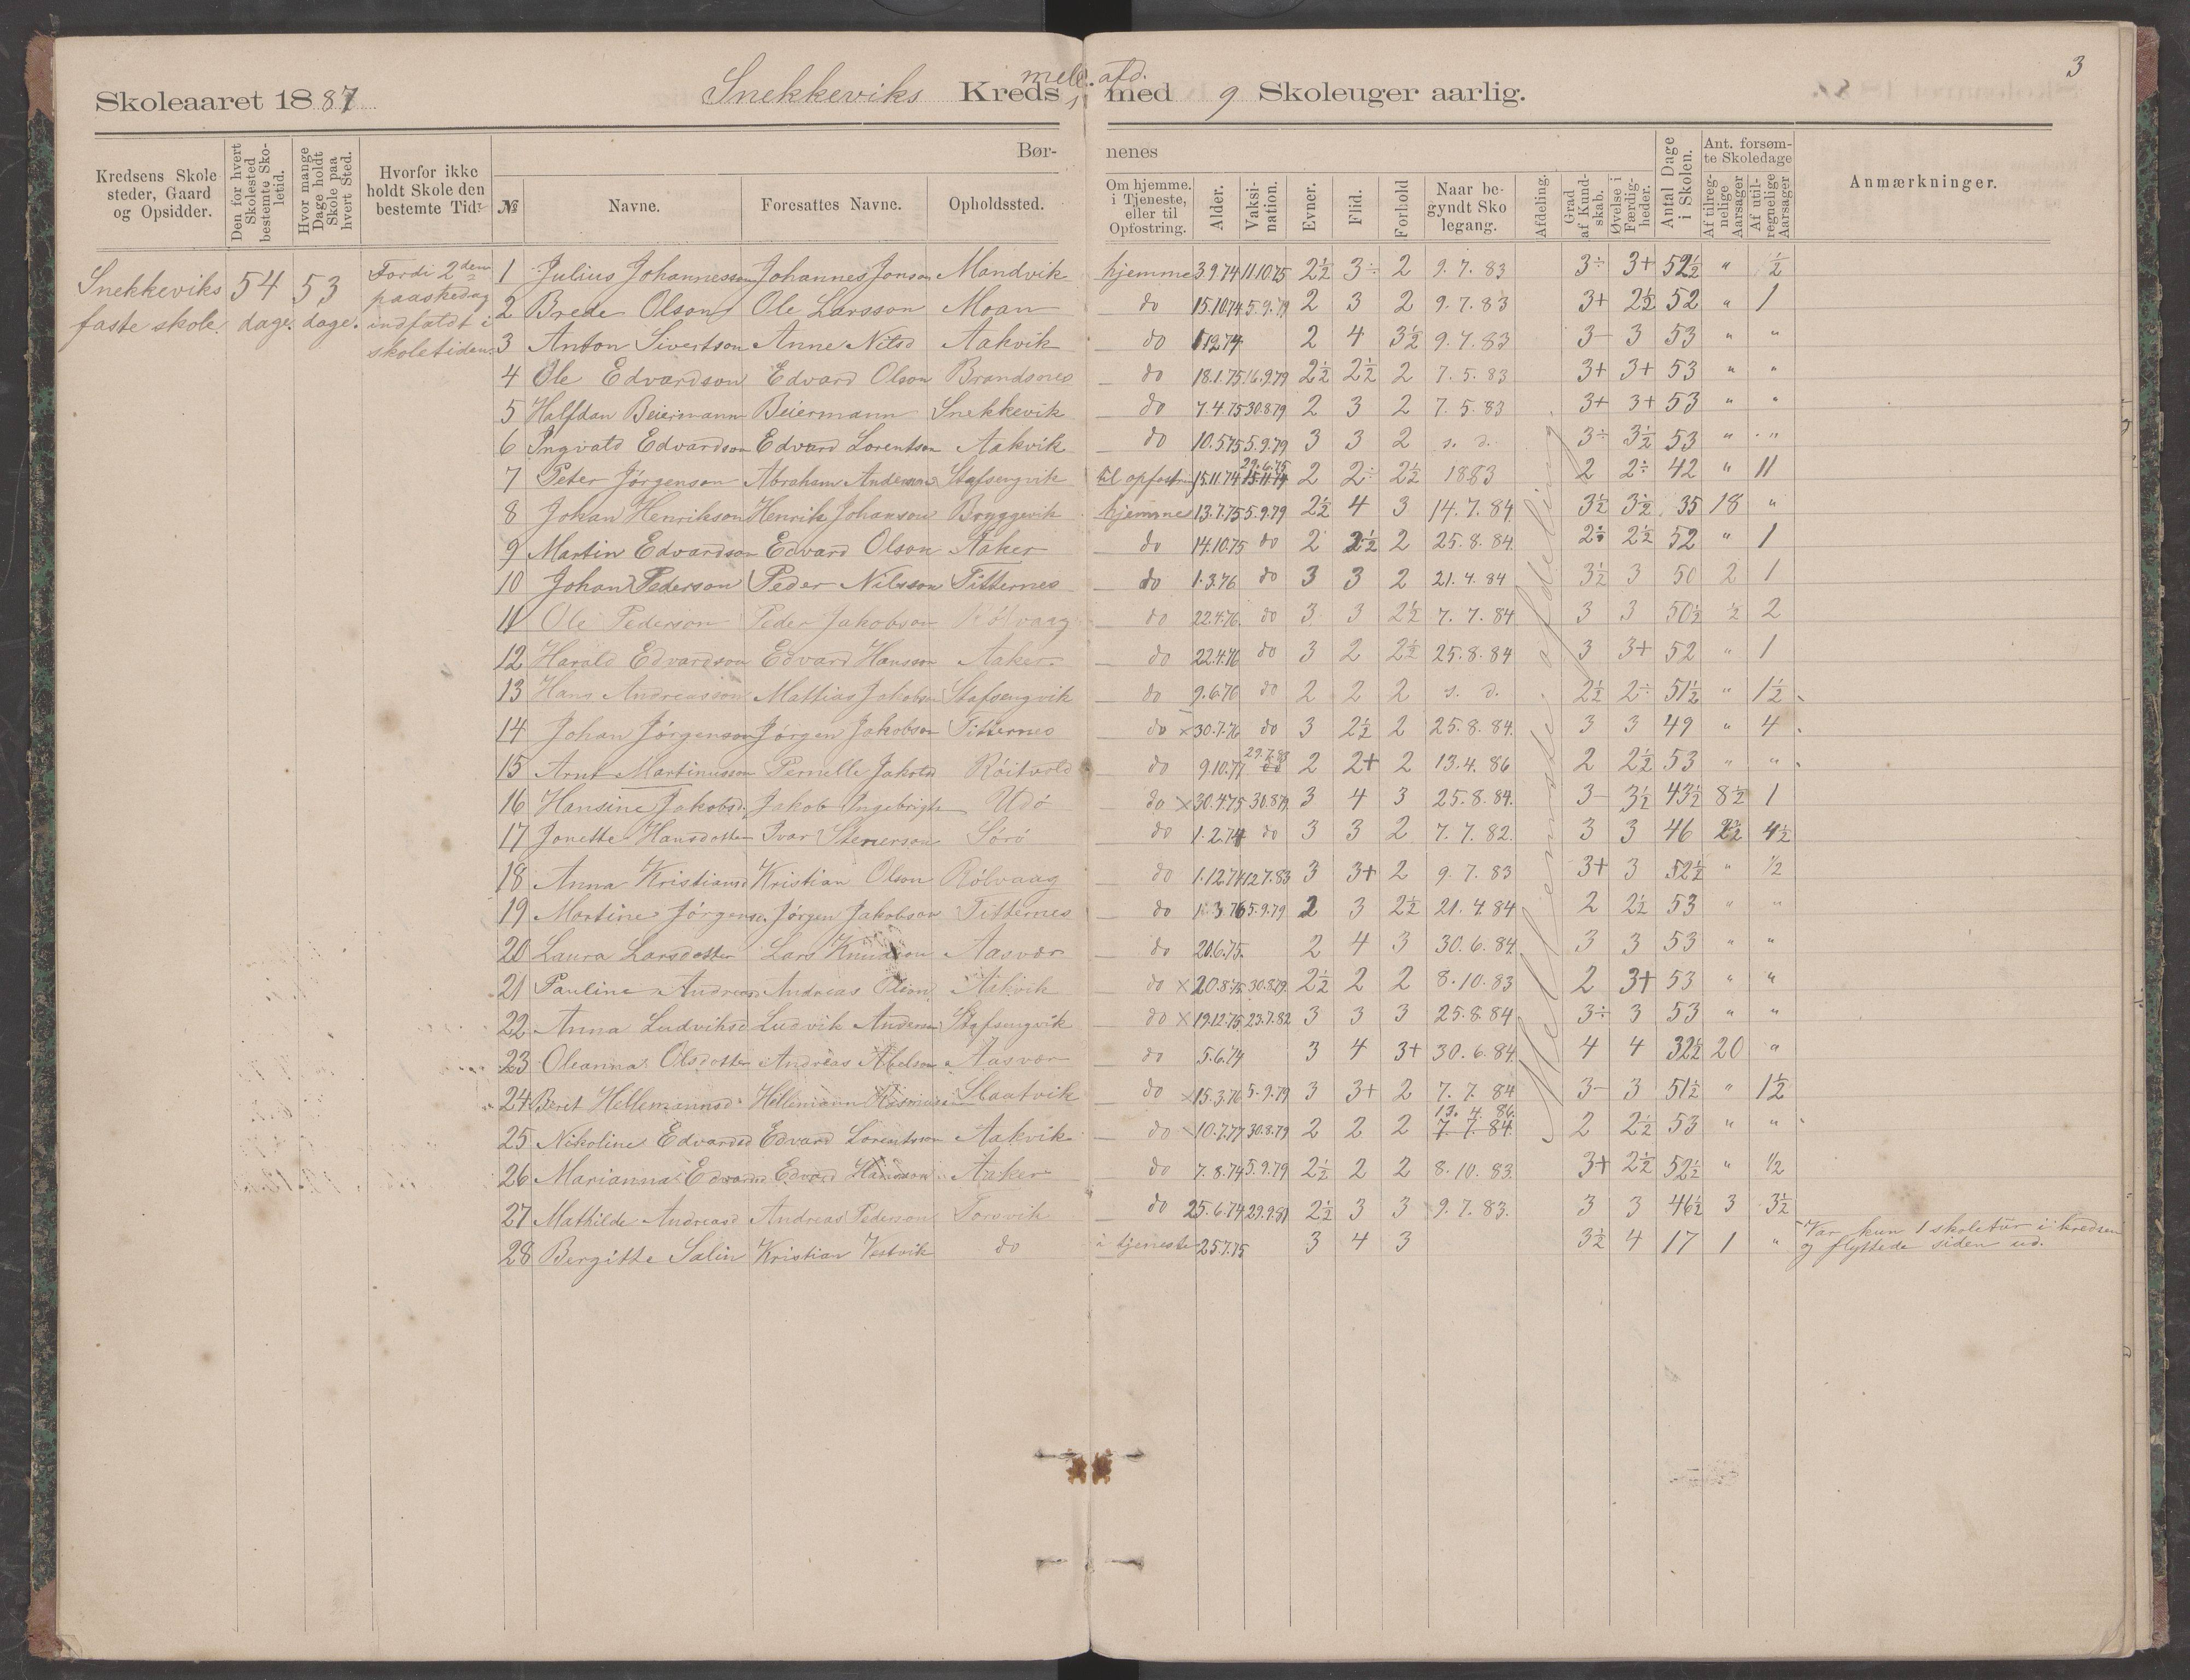 3
Skoleaaret 1887 Snekkeviks Kreds, mell. afd. med 9 Skoleuger aarlig.
Kredsens Skolesteder, Gaard og Opsidder. Den for hvert Skolested bestemte Skoletid. Hvor mange Dage holdt Skole paa hvert Sted. Hvorfor ikke holdt Skole den bestemte Tid? Bør- nenes Antal Dage i Skolen. Ant. forsømte Skoledage Anmærkninger.
№ Navne. Foresattes Navne. Opholdssted. Om hjemme, i Tjeneste, eller til Opfostring. Alder. Vaksination. Evner. Flid. Forhold Naar begyndt Skolegang. Afdeling. Grad af Kundskab. Øvelse i Færdigheder. Af tilregnelige Aarsager Af utilregnelige Aarsager
Snekkeviks faste skole. 54 dage. 53 dage. Fordi 2den paaskedag indfaldt i skoletiden.
Mellemste afdeling
1 Julius Johannesson Johannes Jonson Mandvik hjemme 3.9.74 11.10.75 2½ 3÷ 2 9.7.83 3÷ 3+ 52½ " ½
2 Brede Olson Ole Larsson Moan do 15.10.74 5.9.79 2 3 2 9.7.83 3+ 2½ 52 " 1
3 Anton Sivertson Anne Nilsd Aakvik do 1.12.74 2 4 3½ 9.7.83 3- 3 53 " "
4 Ole Edvardson Edvard Olson Brandsnes do 18.1.75 16.9.79 2½ 2½ 2 7.5.83 3+ 3+ 53 " "
5 Halfdan Beiermann Beiermann Snekkevik do 7.4.75 30.8.79 2 3 2 7.5.83 3+ 3+ 53 " "
6 Ingvald Edvardson Edvard Lorentson Aakvik do 10.5.75 5.9.79 3 3 2 s. d. 3÷ 3½ 53 " "
7 Peter Jörgenson Abraham Anderson Stafsengvik til opfostring 15.11.74 29.6.75 2 2÷ 2½ 1883 2 2÷ 42 " 11
8 Johan Henrikson Henrik Johanson Bryggevik hjemme 13.7.75 5.9.79 2½ 4 3 14.7.84 3½ 3½ 35 18 "
9 Martin Edvardson Edvard Olson Aaker do 14.10.75 do 2 2½ 2 25.8.84. 2÷ 2½ 52 " 1
10 Johan Pederson Peder Nilsson Titternes do 1.3.76 do 3 3 2 21.4.84 3½ 3 50 2 1
11 Ole Pederson Peder Jakobson Rölvaag do 22.4.76 do 3 3 2½ 7.7.84 3 3 50½ ½ 2
12 Harald Edvardson Edvard Hansson Aaker do 22.4.76 do 3 2 2½ 25.8.84 3 3+ 52 " 1
13 Hans Andreasson Mattias Jakobson Stafsengvik do 9.6.76 do 2 2 2 s. d. 2½ 2÷ 51½ " 1½
14 Johan Jörgenson Jörgen Jakobson Titternes do × 30.7.76 do 3 2½ 2 25.8.84. 3 3 49 " 4
15 Arnt Martinusson Pernelle Jakobsd Röitvold do 9.10.77 29.7.83 2 2+ 2 13.4.86 2 2½ 53 " "
16 Hansine Jakobsd. Jakob Ingebrigts Udö do × 30.4.75 30.8.79. 3 4 3 25.8.84. 3- 3½ 43½ 8½ 1
17 Jonette Hansdotter Ivar Stenerson Sörö do 1.2.74 do 3 3 2 7.7.82. 3 3 46 2½ 4½
18 Anna Kristiansd Kristian Olson Rölvaag do 1.12.74 12.7.83 3 3+ 2 9.7.83 3+ 3 52½ " ½
19 Martine Jörgensd. Jörgen Jakobson Titternes do 1.3.76 5.9.79 2 3 2½ 21.4.84 2 2½ 53 " "
20 Laura Larsdotter Lars Knudson Aasvær do 20.6.75. 2 4 3 30.6.84. 3 3 53 " "
21 Pauline Andreasd Andreas Olson Aakvik do × 20.8.75 30.8.79. 2½ 2 2 8.10.83 2 3+ 53 " "
22 Anna Ludviksd Ludvik Anderson Stafsengvik do × 19.12.75 23.7.82 3 3 3 25.8.84 3÷ 3 53 " "
23 Oleanna Olsdotter Andreas Abelson Aasvær do 5.6.74 3 4 3+ 30.6.84. 4 4 32½ 20 "
24 Berit Hellemannsd Hellemann Rasmussen Slaatvik do × 15.3.76 5.9.79 3 3+ 2 7.7.84 3- 3 51½ " 1½
25 Nikoline Edvardsd Edvard Lorentson Aakvik do × 10.7.77 30.8.79 2 2 2 13.4.86. 7.7.84. 2 2½ 53 " "
26 Marianna Edvardsd Edvard Hansson Aaker do 7.8.74 5.9.79 2½ 2 2 8.10.83. 3+ 2½ 52½ " ½
27 Mathilde Andreasd Andreas Pederson Torsvik do 25.6.74 29.9.81 2½ 3 3 9.7.83. 3 3 46½ 3 3½
28 Bergitte Salin Kristian Vestvik do i tjeneste 25.7.75 3 4 3 3½ 4 17 1 " Var kun 1 skoletur i kredsen og flyttede siden ud.